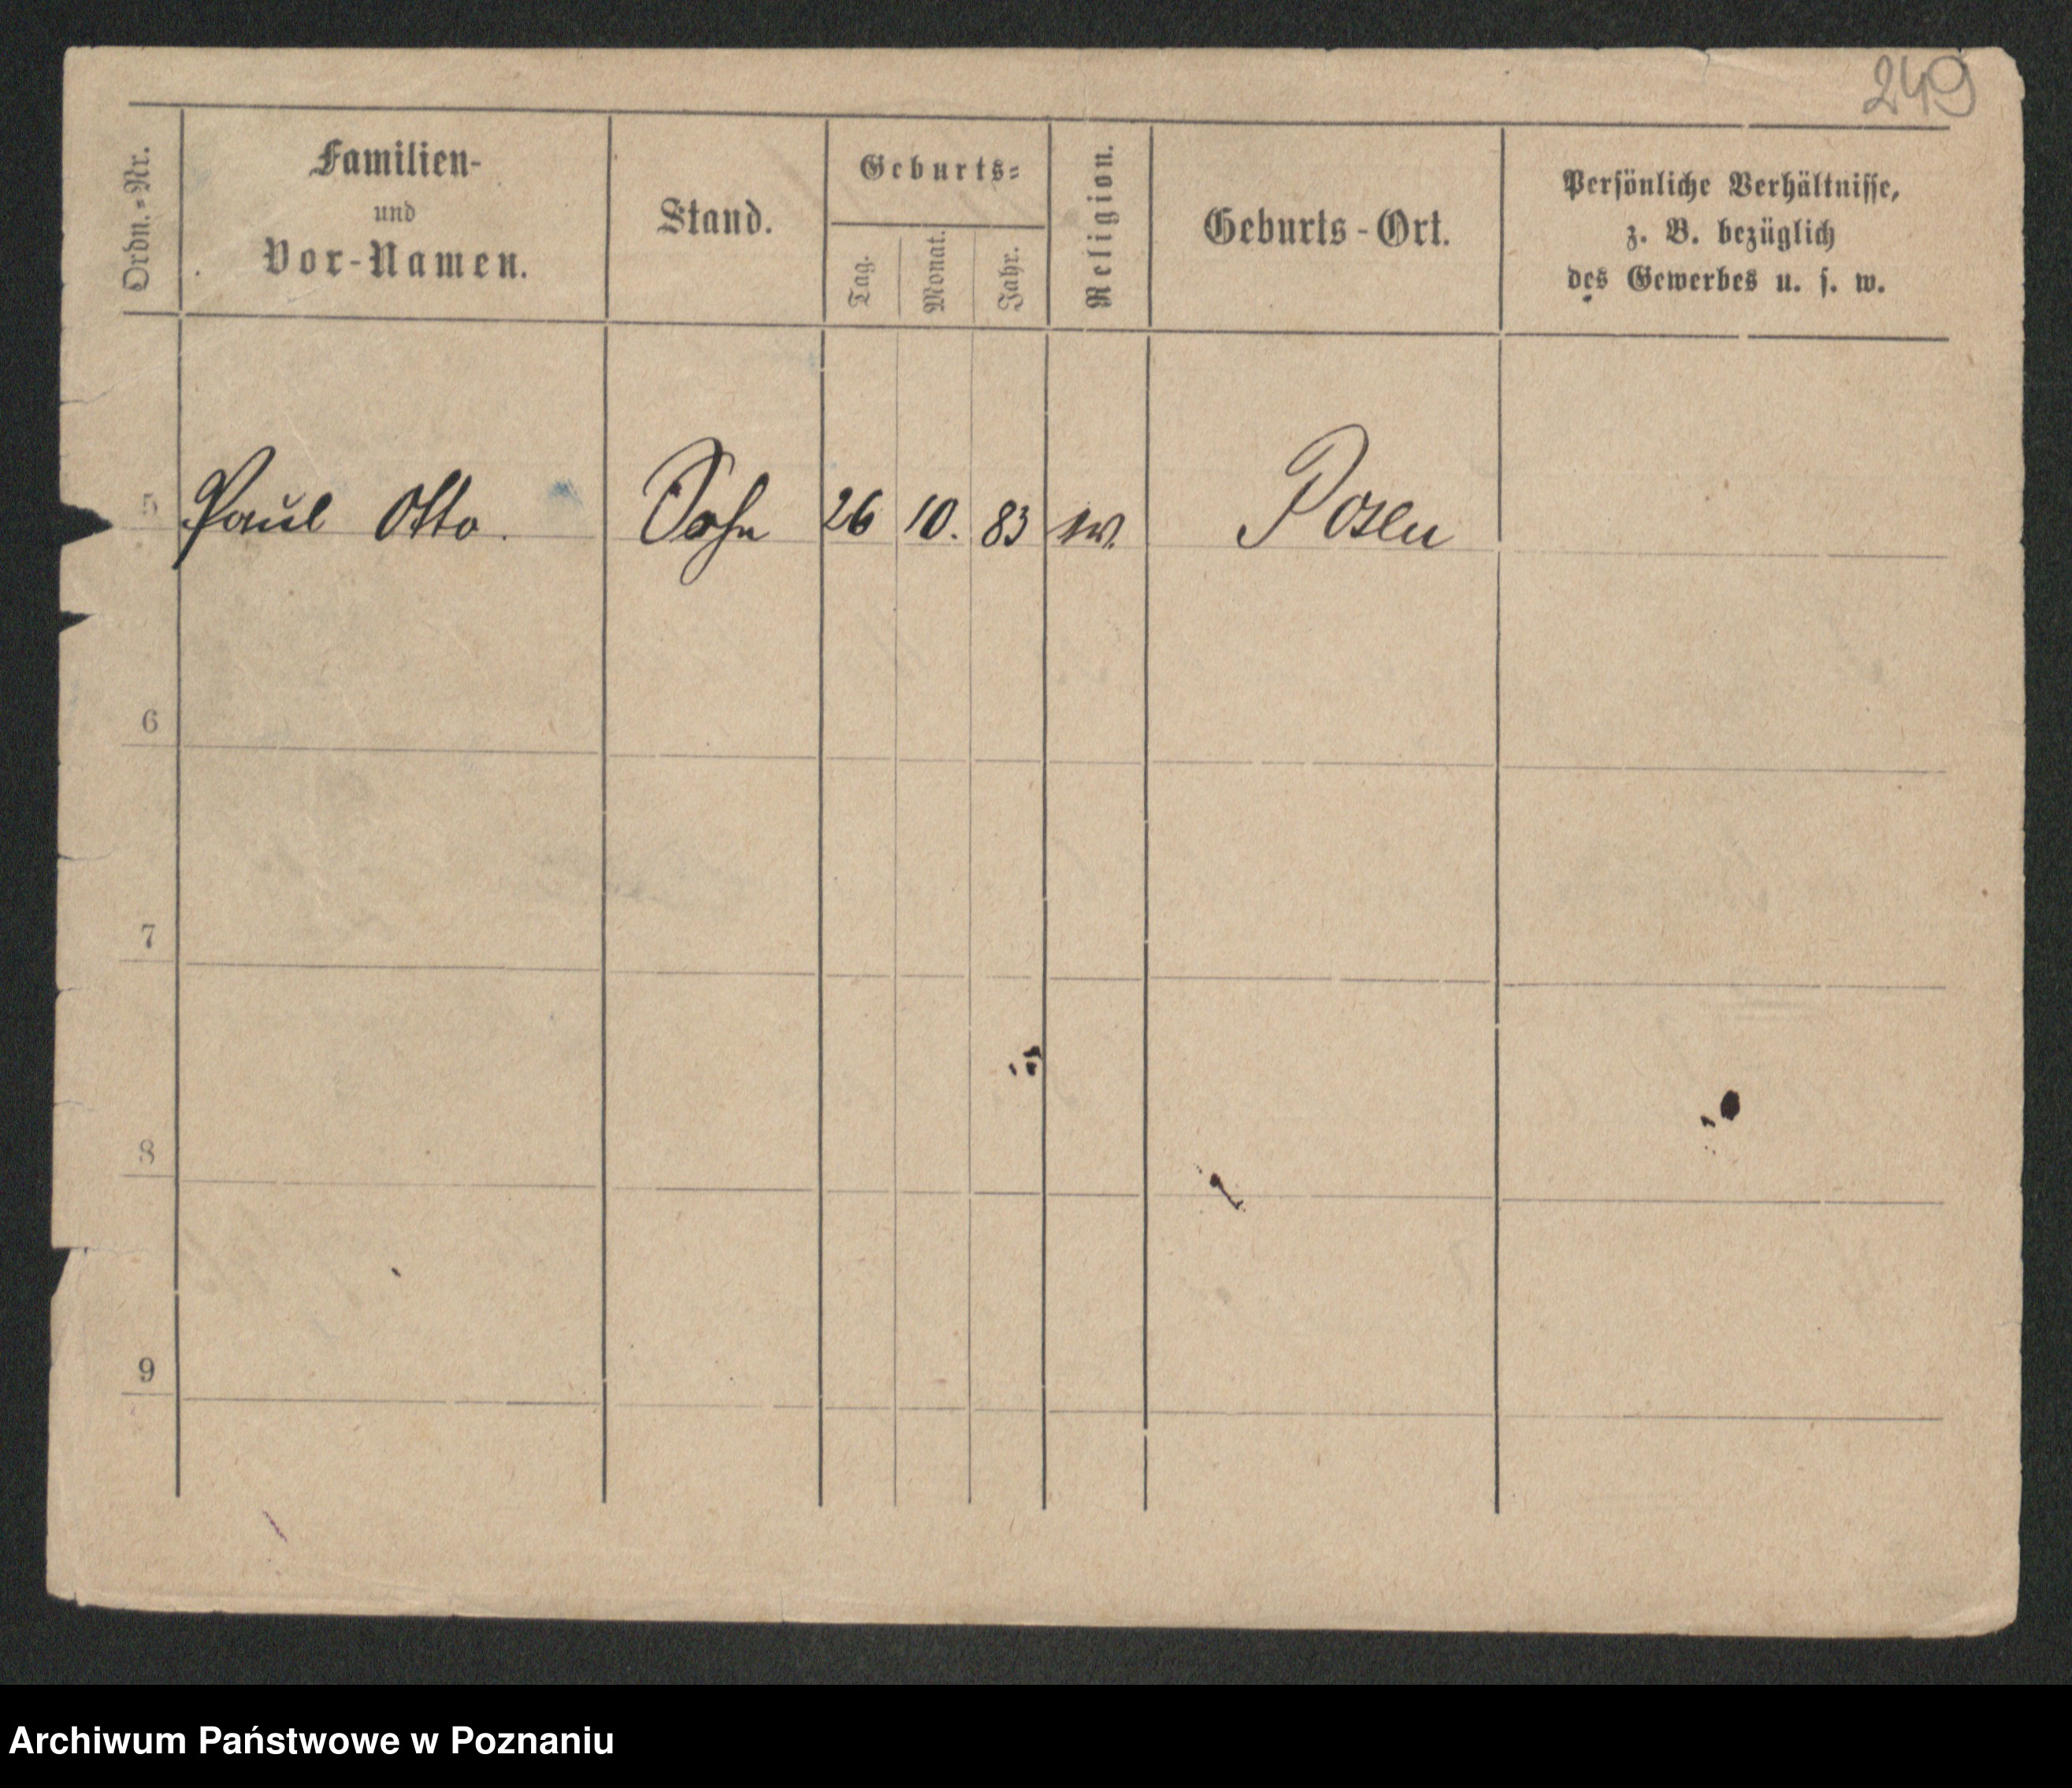 249
Ordn.-Nr.
Familien-
und
Vor-Namen.
Stand.
Geburts-
Tag.
Monat.
Jahr.
Religion.
Geburts-Ort.
Persönliche Verhältnisse,
z. B. bezüglich
des Gewerbes u. s. w.
5 Paul Otto. Sohn 26 10. 83 ew. Posen
6
7
8
9
Archiwum Państwowe w Poznaniu